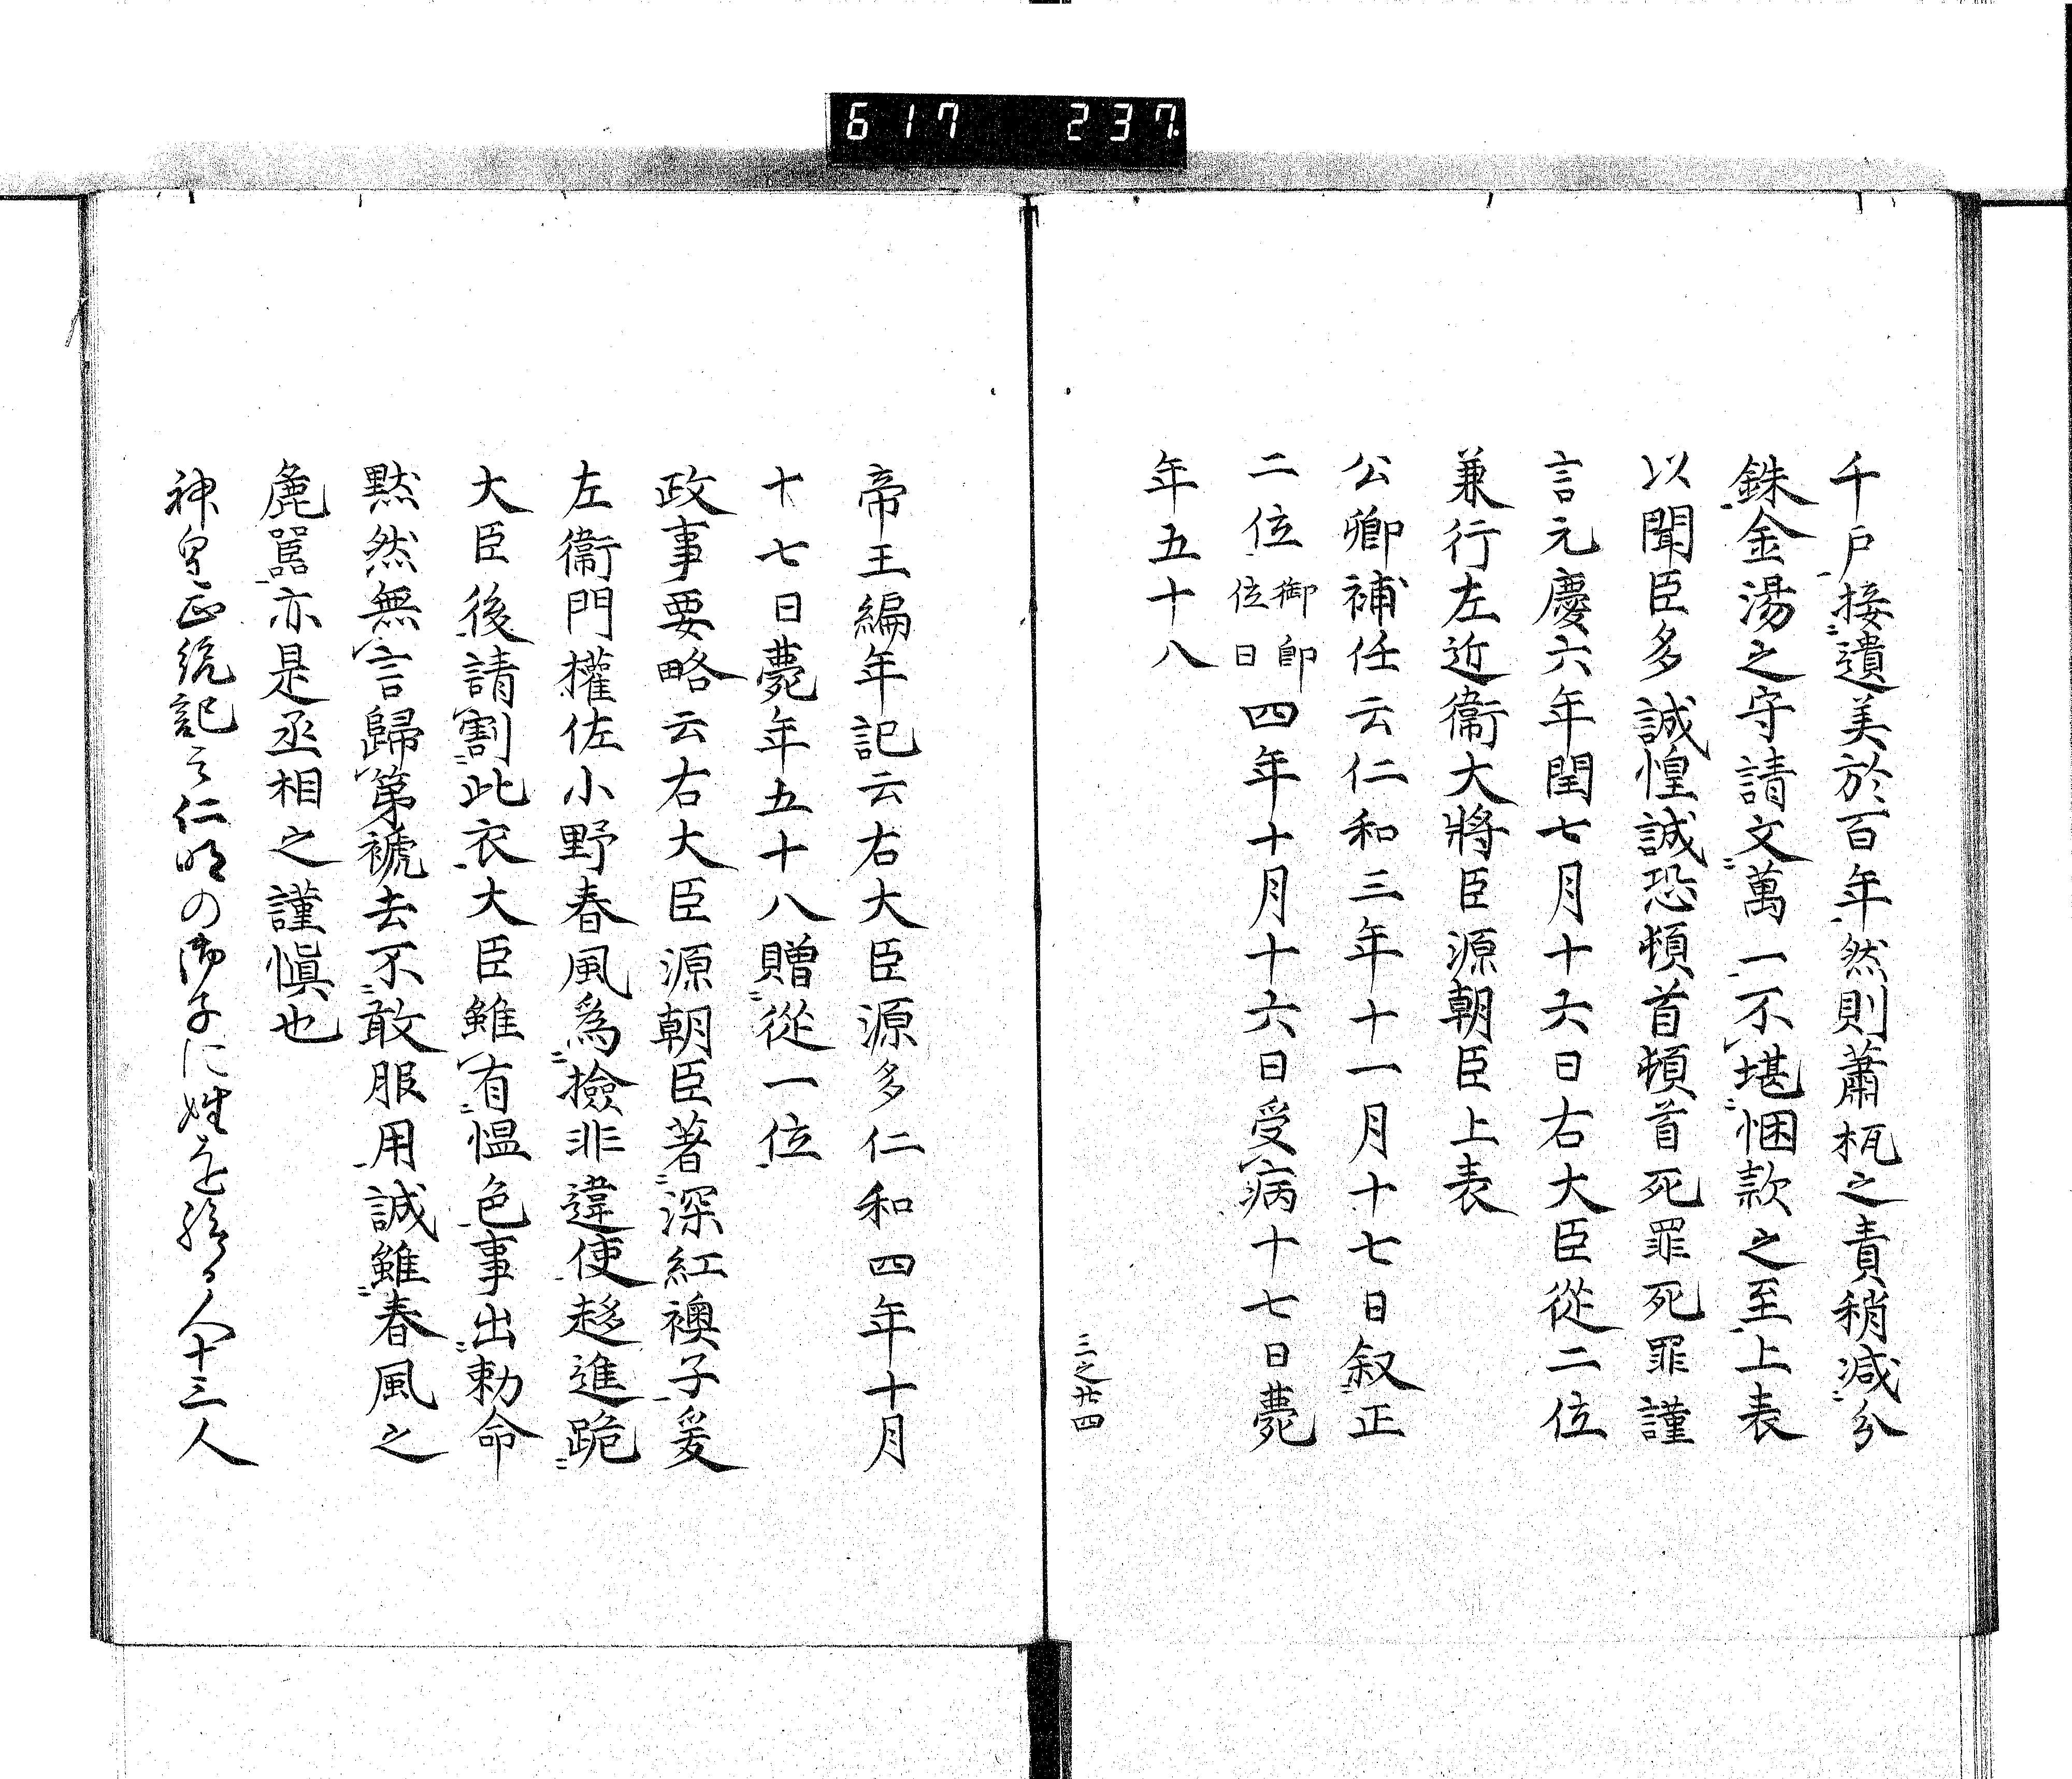 617 237
千戸接遺美於百年然則蕭瓶之責稍減分
銖金湯之守請文萬一不堪悃款之至上表
以聞臣多誠惶誠恐頓首頓首死罪死罪謹
言元慶六年閏七月十六日右大臣從二位
兼行左近衞大將臣源朝臣上表
公卿補任云仁和三年十一月十七日叙正
二位御即位日四年十月十六日受病十七日薨
年五十八
三之廿四
帝王編年記云右大臣源多仁和四年十月
十七日薨年五十八贈從一位
政事要略云右大臣源朝臣著深紅襖子爰
左衞門權佐小野春風爲撿非違使趍進跪
大臣後請割此衣大臣雖有愠色事出勅命
黙然無言歸第褫去不敢服用誠雖春風之
麁嚚亦是丞相之謹愼也
神皇正統記云仁明の御子に姓を給る人十三人